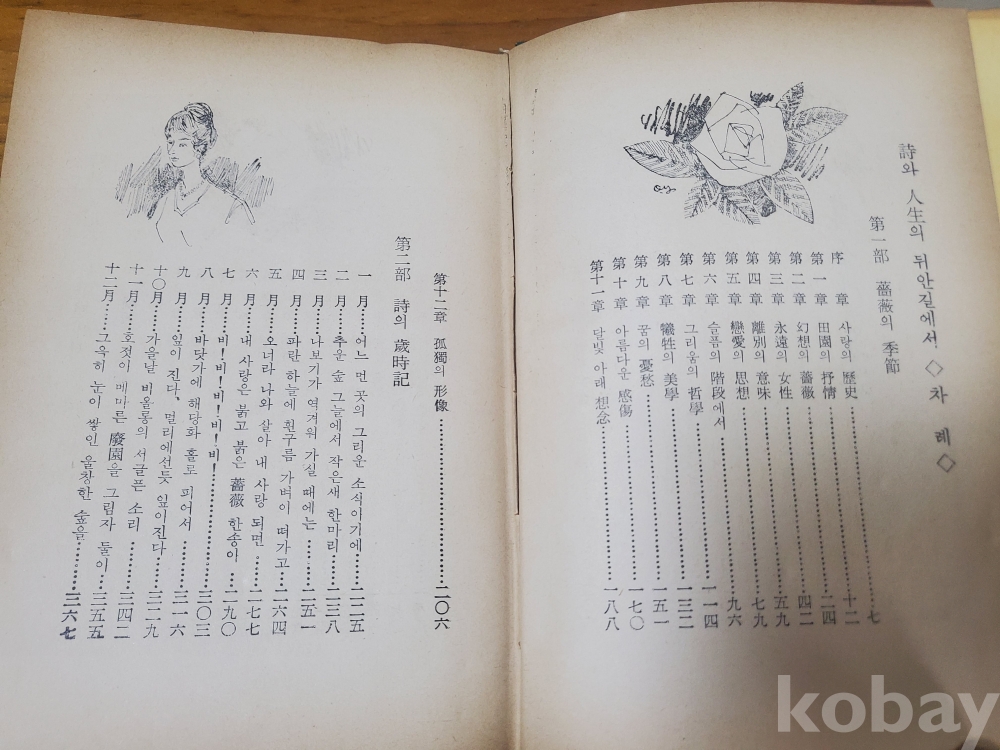 詩와 人生의 뒤안길에서 ◇차 례◇
第一部 薔薇의 季節
序 章 사랑의 歷史……………七
第一章 田園의 抒情……………十二
第二章 幻想의 薔薇……………二四
第三章 永遠의 女性……………四二
第四章 離別의 意味……………五九
第五章 戀愛의 思想……………七九
第六章 슬픔의 階段에서……………九六
第七章 그리움의 哲學……………一一四
第八章 犧牲의 美學……………一三二
第九章 꿈의 憂愁……………一五一
第十章 아름다운 感傷……………一七〇
第十一章 달빛 아래 想念……………一八八
第十二章 孤獨의 形像……………二〇六
第二部 詩의 歲時記
一 月…어느 먼 곳의 그리운 소식이기에……二二五
二 月…추운 숲 그늘에서 작은새 한마리……二三八
三 月…나보기가 역겨워 가실 때에는……二五一
四 月…파란 하늘에 흰구름 가벼이 떠가고……二六四
五 月…오너라 나와 살아 내 사랑 되면……二七七
六 月…내 사랑은 붉고 붉은 薔薇 한송이……二九〇
七 月…비!비!비!비!비!……三〇三
八 月…바닷가에 해당화 홀로 피어서……三一六
九 月…잎이 진다, 멀리에선듯 잎이진다……三二九
十〇月…가을날 비올롱의 서글픈 소리……三四二
十一月…호젓이 메마른 廢園을 그림자 둘이……三五五
十二月…그윽히 눈이 쌓인 울창한 숲을……三六七
kobay